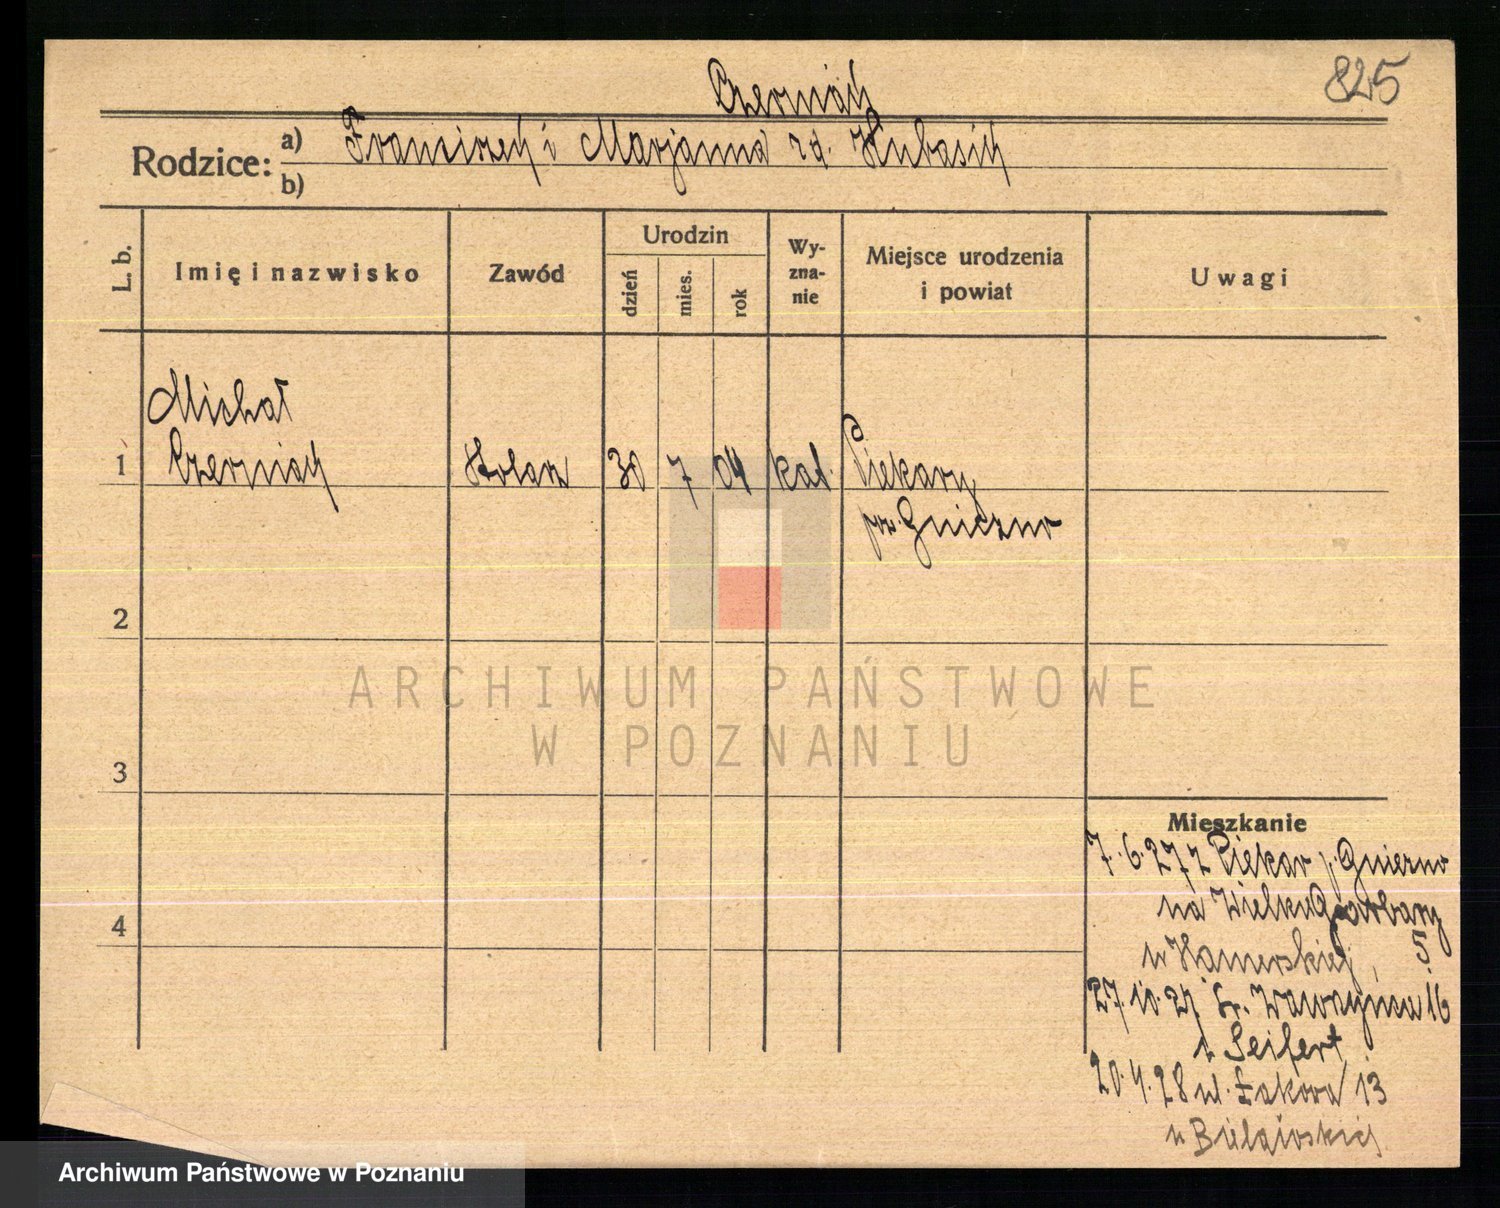 825
Czerniak
Rodzice:
a) Franciszek i Marjanna zd. Kubasik
b)
L. b.
Imię i nazwisko
Zawód
Urodzin
dzień
mies.
rok
Wy-
zna-
nie
Miejsce urodzenia
i powiat
Uwagi
Michał
1 Czerniak Stolarz 30 7 04 kat. Piekary
pow. Gniezno
2
3
4
Mieszkanie
7.6.27 z Piekar p. Gniezno
na Wielkie Garbary
5
27.10.27 Św. Wawrzyńca 16
u Seifert
20.4.28 ul. Łąkowa 13
u
ARCHIWUM PAŃSTWOWE
W POZNANIU
Archiwum Państwowe w Poznaniu